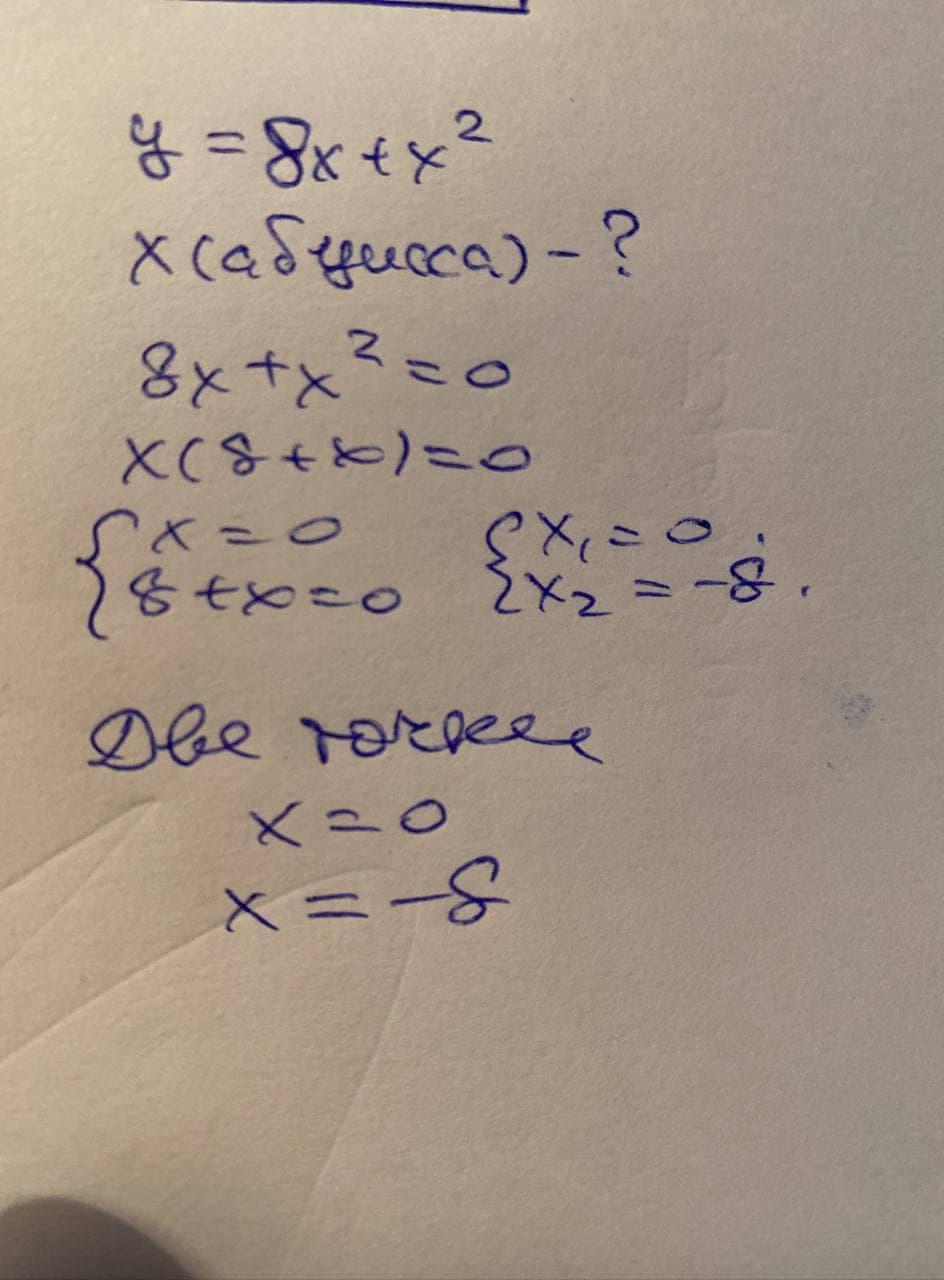 y = 8x + x²
x (абцисса) - ?
8x + x² = 0
x(8 + x) = 0
{ x = 0 { x₁ = 0;
{ 8 + x = 0 { x₂ = -8.
Две точки
x = 0
x = -8